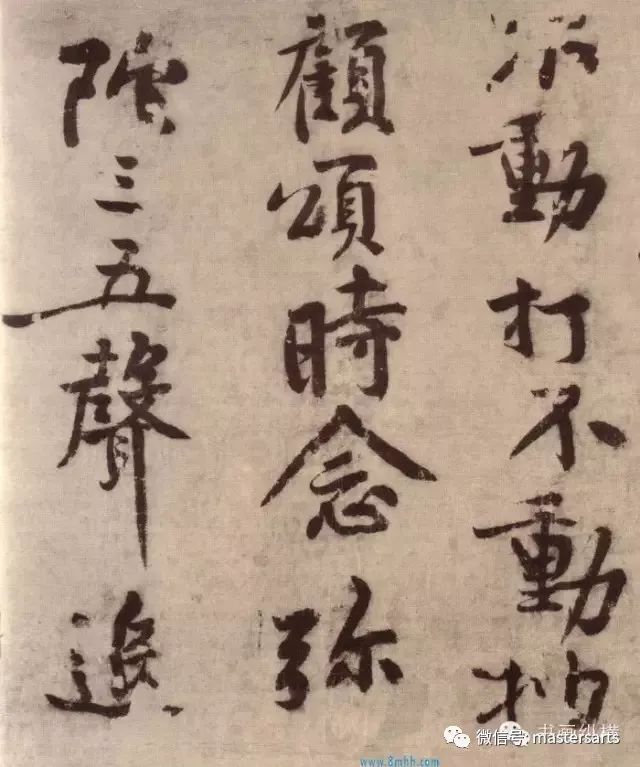 動打不動
顧頌時念弥
陀三五聲
书画纵横
微信号: mastersarts
www.8mhh.com